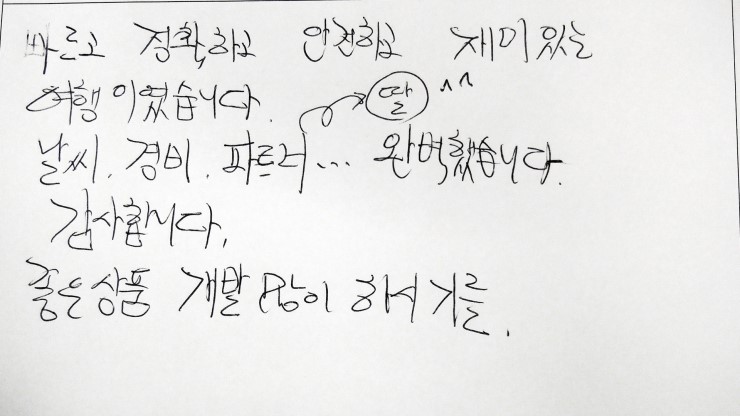 빠르고 정확하고 안전하고 재미있는
여행이였습니다. 딸 ^^
날씨. 경비. 파트너... 완벽했습니다.
감사합니다.
좋은상품 개발 많이 하시기를.